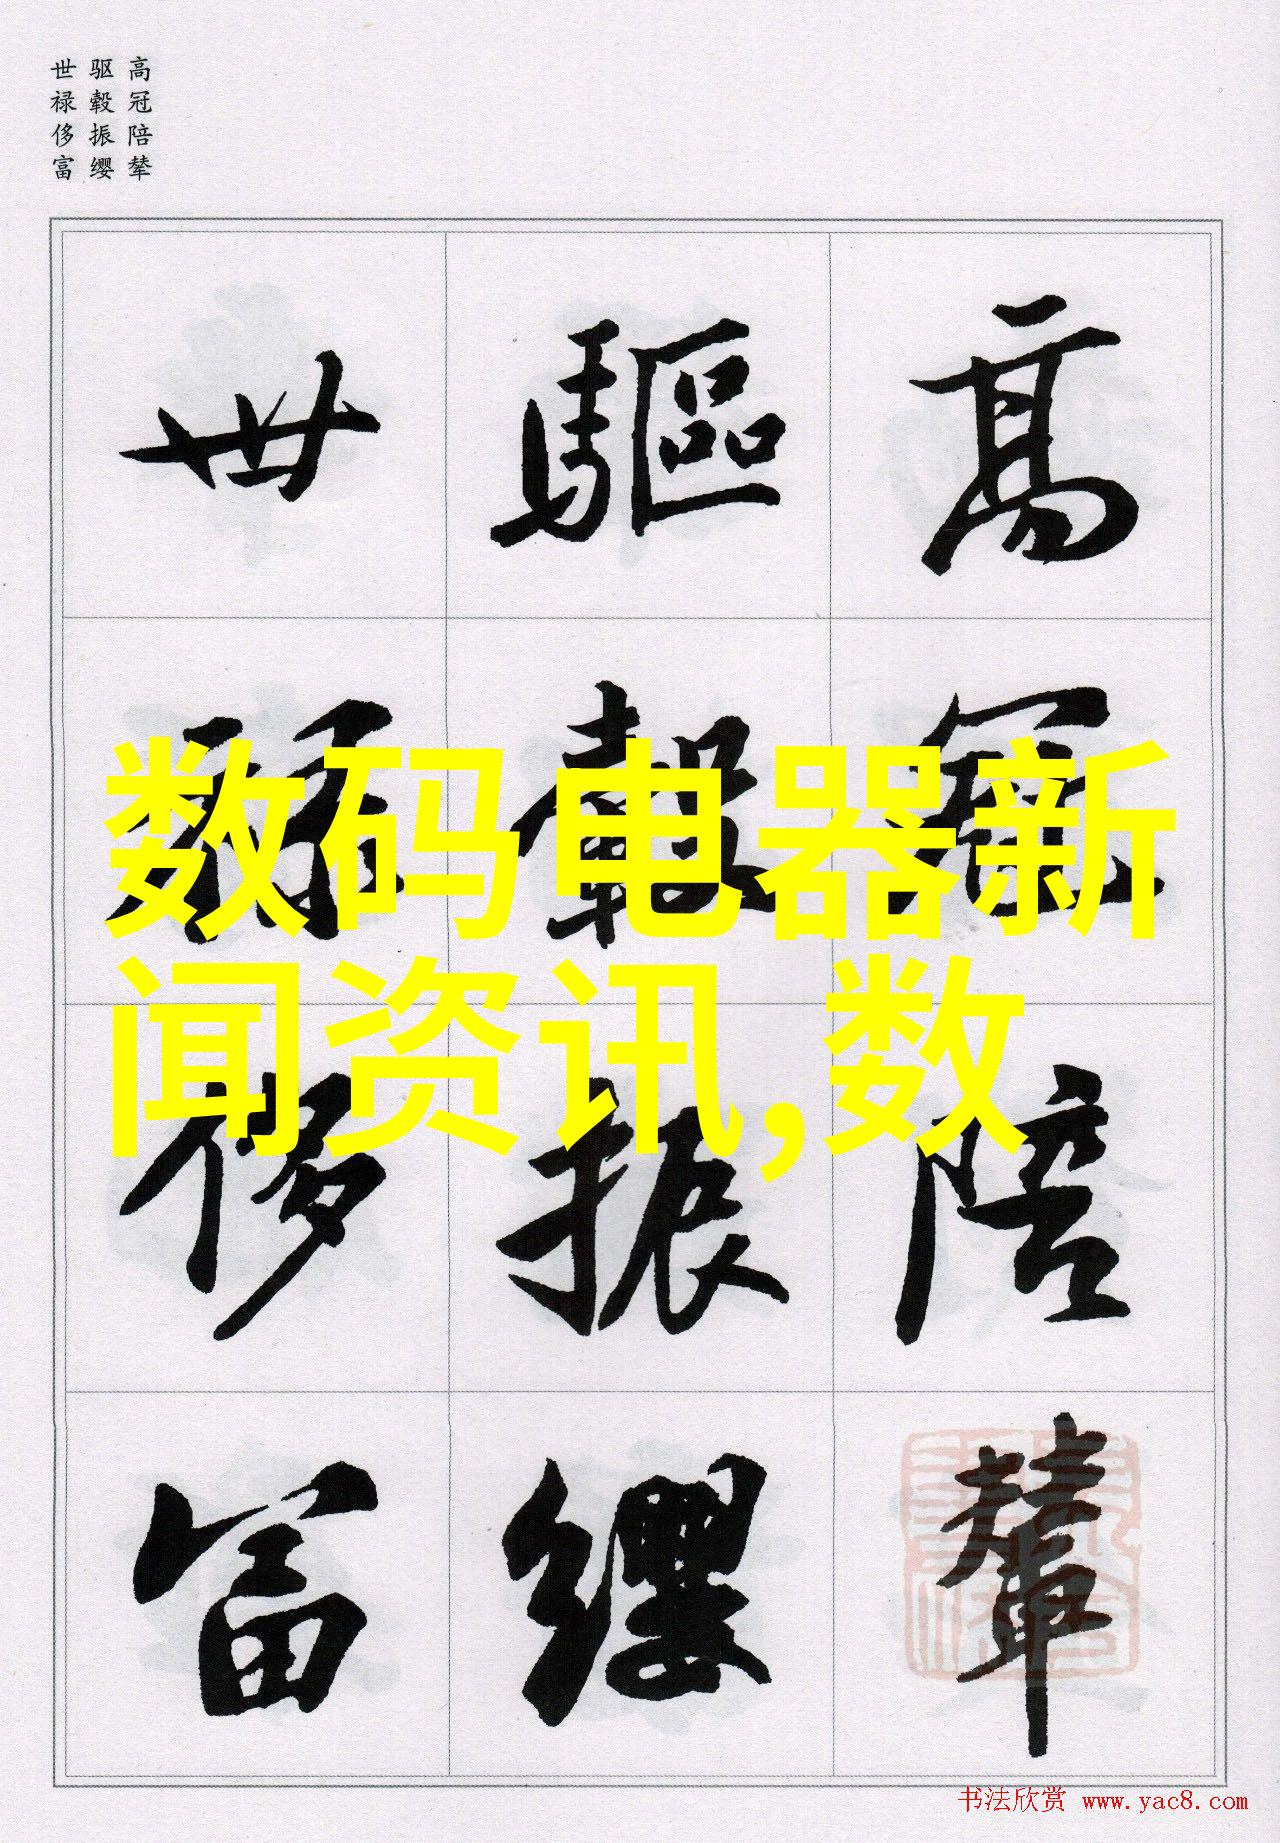 高冠陪辇
驱毂振缨
世禄侈富
高冠陪輦
驅轂振纓
世禄侈富
数码电器新
闻资讯,数
书法欣赏 www.yac8.com